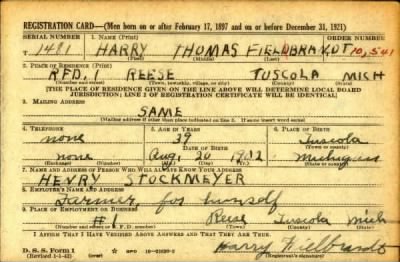 REGISTRATION CARD—(Men born on or after February 17, 1897 and on or before December 31, 1921)
SERIAL NUMBER 1. NAME (Print) ORDER NUMBER
1481 HARRY THOMAS FIELDBRANDT 10,541
(First) (Middle) (Last)
2. PLACE OF RESIDENCE (Print)
RFD, 1 REESE TUSCOLA MICH
(Number and street) (Town, township, village, or city) (County) (State)
[THE PLACE OF RESIDENCE GIVEN ON THE LINE ABOVE WILL DETERMINE LOCAL BOARD
JURISDICTION; LINE 2 OF REGISTRATION CERTIFICATE WILL BE IDENTICAL]
3. MAILING ADDRESS
SAME
(Mailing address if other than place indicated on line 2. If same insert word same)
4. TELEPHONE 5. AGE IN YEARS 6. PLACE OF BIRTH
none 39 Tuscola
DATE OF BIRTH (Town or county)
none Aug. 20 1902 Michigan
(Exchange) (Number) (Mo.) (Day) (Yr.) (State or country)
7. NAME AND ADDRESS OF PERSON WHO WILL ALWAYS KNOW YOUR ADDRESS
HENRY STOCKMEYER
8. EMPLOYER'S NAME AND ADDRESS
Farmer for himself
9. PLACE OF EMPLOYMENT OR BUSINESS
#1 Reese Tuscola Mich
(Number and street or R. F. D. number) (Town) (County) (State)
I AFFIRM THAT I HAVE VERIFIED ABOVE ANSWERS AND THAT THEY ARE TRUE.
D. S. S. Form 1
(Revised 1-1-42) GPO Harry Fielbrandt
(Registrant's signature)